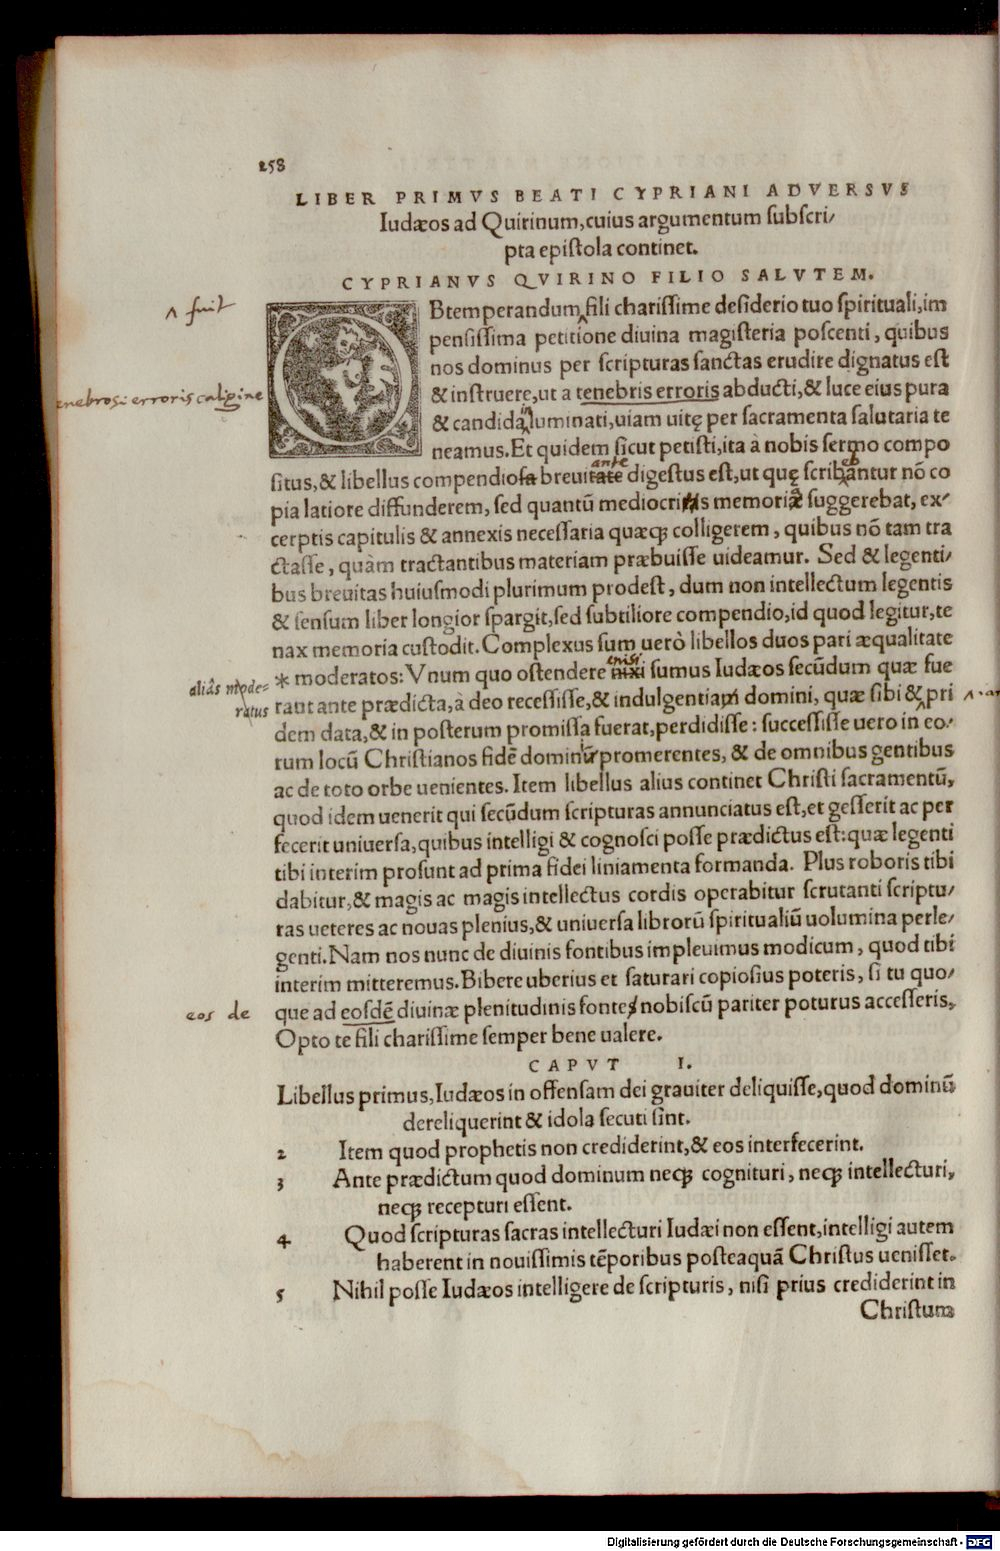 258
LIBER PRIMVS BEATI CYPRIANI ADVERSVS
Iudæos ad Quirinum,cuius argumentum subscri/
pta epistola continet.
CYPRIANVS QVIRINO FILIO SALVTEM.
^ fuit
OBtemperandum^fili charissime desiderio tuo spirituali,im
pensissima petitione diuina magisteria poscenti, quibus
nos dominus per scripturas sanctas erudire dignatus est
enebrosi erroris caligine
& instruere,ut a tenebris erroris abducti,& luce eius pura
in
& candida^luminati,uiam uitę per sacramenta salutaria te
neamus.Et quidem sicut petisti,ita à nobis sermo compo
ante eb
situs,& libellus compendiosa breuitate digestus est,ut quę scribantur nō co
pia latiore diffunderem, sed quantū mediocritas memoriæ suggerebat, ex/
cerptis capitulis & annexis necessaria quæq; colligerem, quibus nō tam tra
ctasse, quàm tractantibus materiam præbuisse uideamur. Sed & legenti/
bus breuitas huiusmodi plurimum prodest, dum non intellectum legentis
& sensum liber longior spargit,sed subtiliore compendio,id quod legitur,te
nax memoria custodit.Complexus sum uerò libellos duos pari æqualitate
enisi
alias mode=
ratus
* moderatos: Vnum quo ostendere nixi sumus Iudæos secūdum quæ fue
rant ante prædicta,à deo recessisse,& indulgentiam domini, quæ sibi &^pri
dem data,& in posterum promissa fuerat,perdidisse: successisse uero in eo/
rum locū Christianos fidē dominū promerentes, & de omnibus gentibus
ac de toto orbe uenientes. Item libellus alius continet Christi sacramentū,
quod idem uenerit qui secūdum scripturas annunciatus est,et gesserit ac per
fecerit uniuersa,quibus intelligi & cognosci posse prædictus est:quæ legenti
tibi interim prosunt ad prima fidei liniamenta formanda. Plus roboris tibi
dabitur,& magis ac magis intellectus cordis operabitur scrutanti scriptu/
ras ueteres ac nouas plenius,& uniuersa librorū spiritualiū uolumina perle/
genti.Nam nos nunc de diuinis fontibus impleuimus modicum, quod tibi
interim mitteremus.Bibere uberius et saturari copiosius poteris, si tu quo/
eos de
que ad eosdē diuinæ plenitudinis fontes nobiscū pariter poturus accesseris.
Opto te fili charissime semper bene ualere.
CAPVT I.
Libellus primus,Iudæos in offensam dei grauiter deliquisse,quod dominū
dereliquerint & idola secuti sint.
2 Item quod prophetis non crediderint,& eos interfecerint.
3 Ante prædictum quod dominum neq; cognituri, neq; intellecturi,
neq; recepturi essent.
4 Quod scripturas sacras intellecturi Iudæi non essent,intelligi autem
haberent in nouissimis tēporibus posteaquā Christus uenisset.
5 Nihil posse Iudæos intelligere de scripturis, nisi prius crediderint in
Christum
Digitalisierung gefördert durch die Deutsche Forschungsgemeinschaft - DFG